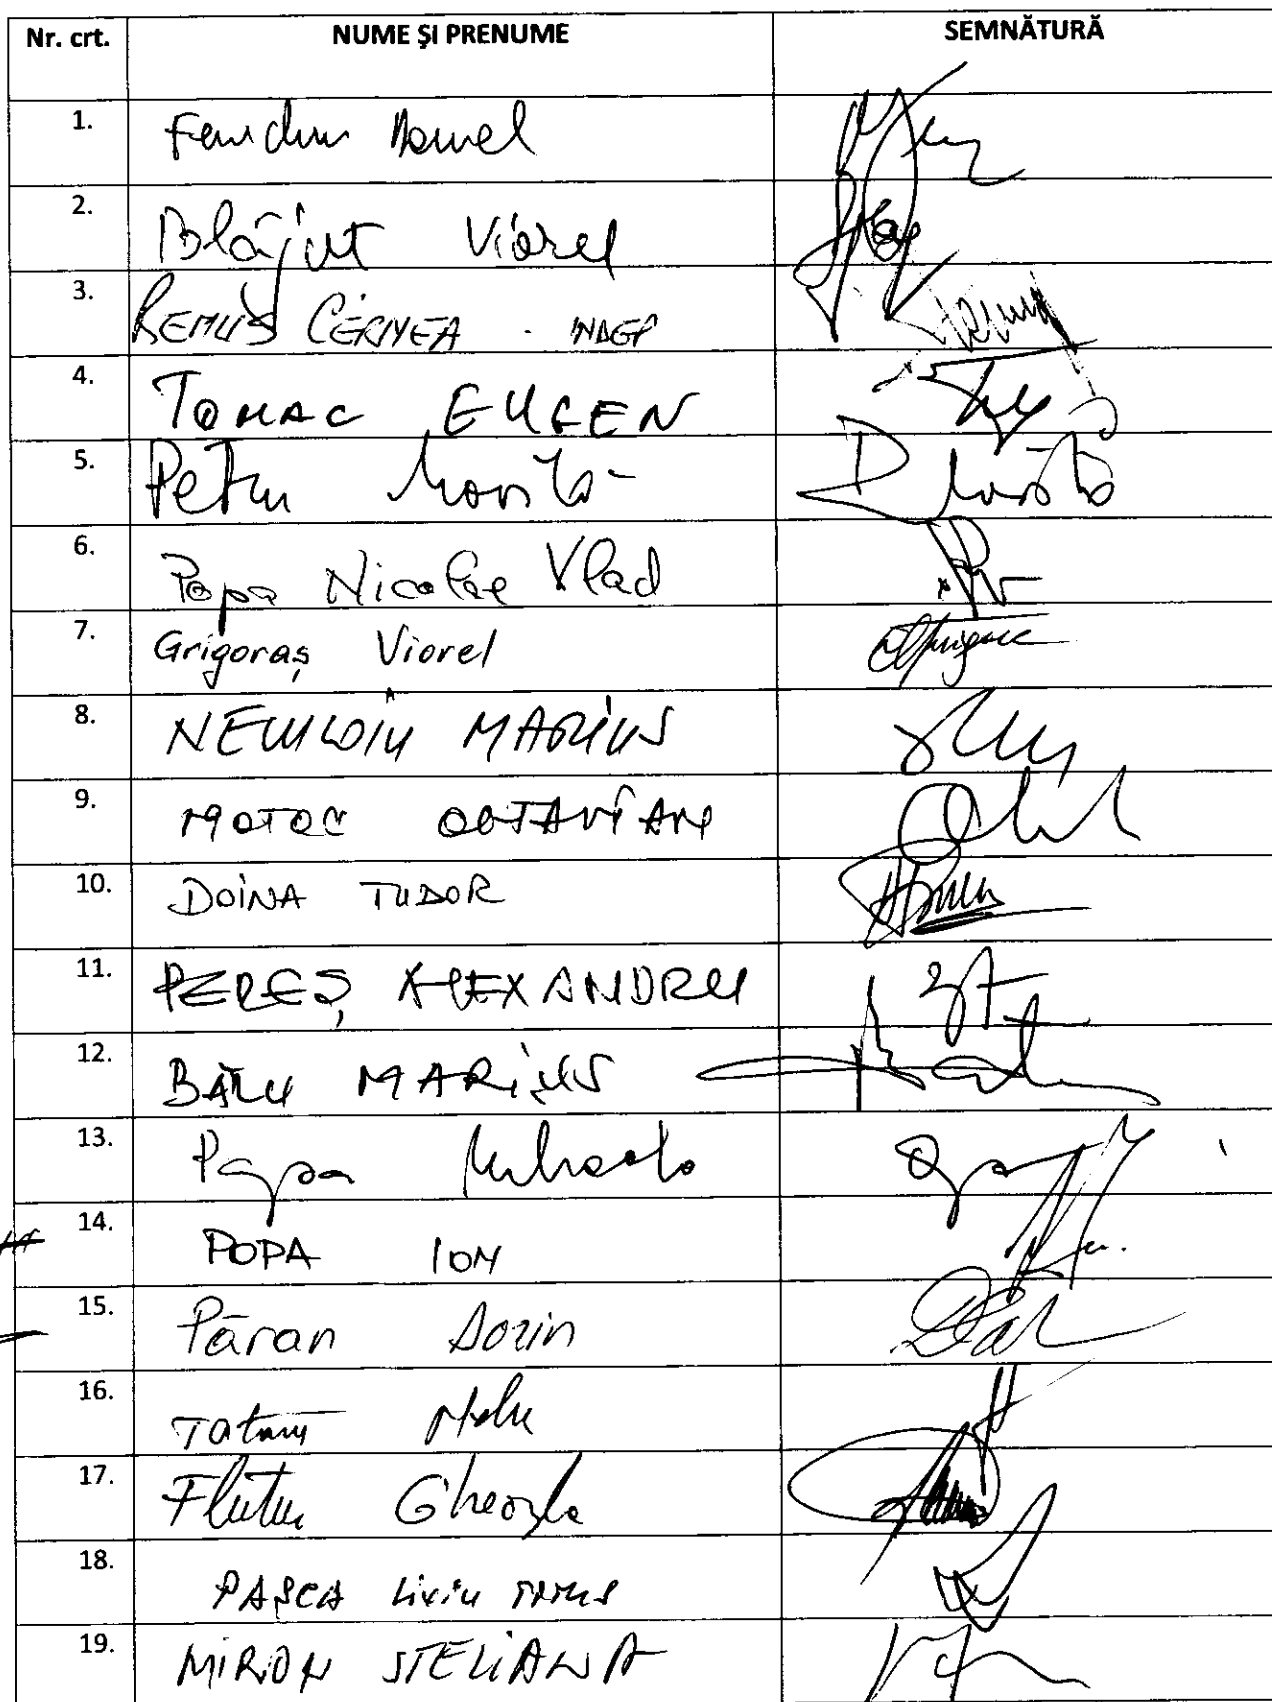 Nr. crt. NUME ȘI PRENUME SEMNĂTURĂ
1. Daniel
2. Blăjut Viorel
3. REMUS CERNEA - INDEP
4. TOMAC EUGEN
5. Petru Movilă
6. Popa Nicolae Vlad
7. Grigoraș Viorel
8. NECULOIU MARIUS
9. MOTOC OCTAVIAN
10. DOINA TUDOR
11. PEREȘ ALEXANDRU
12. BĂLU MARIUS
13. Popa Mihaela
14. POPA ION
15. Păran Dorin
16. Tataru
17. Flutur Gheorghe
18. PAȘCA Liviu TITUS
19. MIRON STELIANA